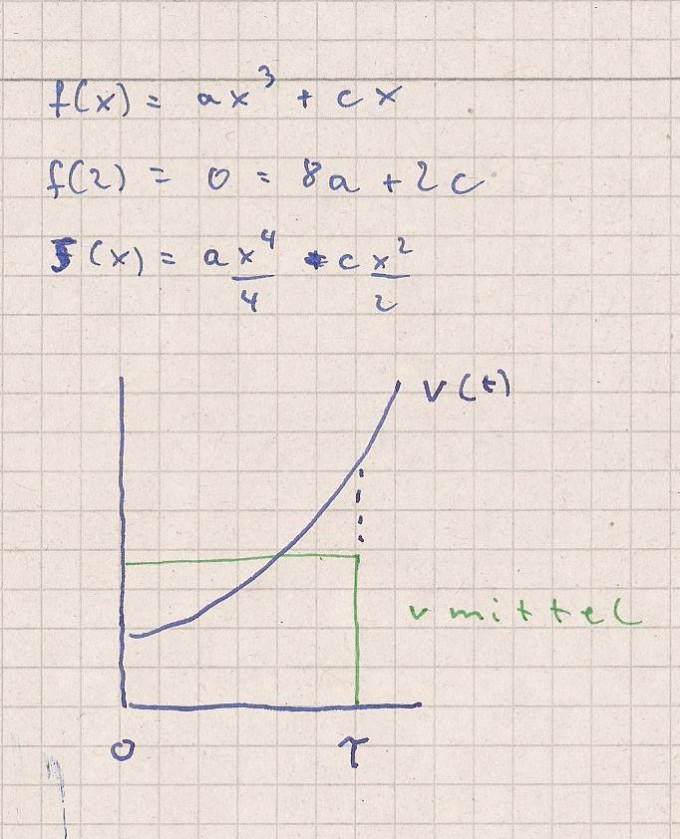 f(x) = ax³ + cx
f(2) = 0 = 8a + 2c
F(x) = a x⁴/4 + c x²/2
v(t)
v mittel
0 T